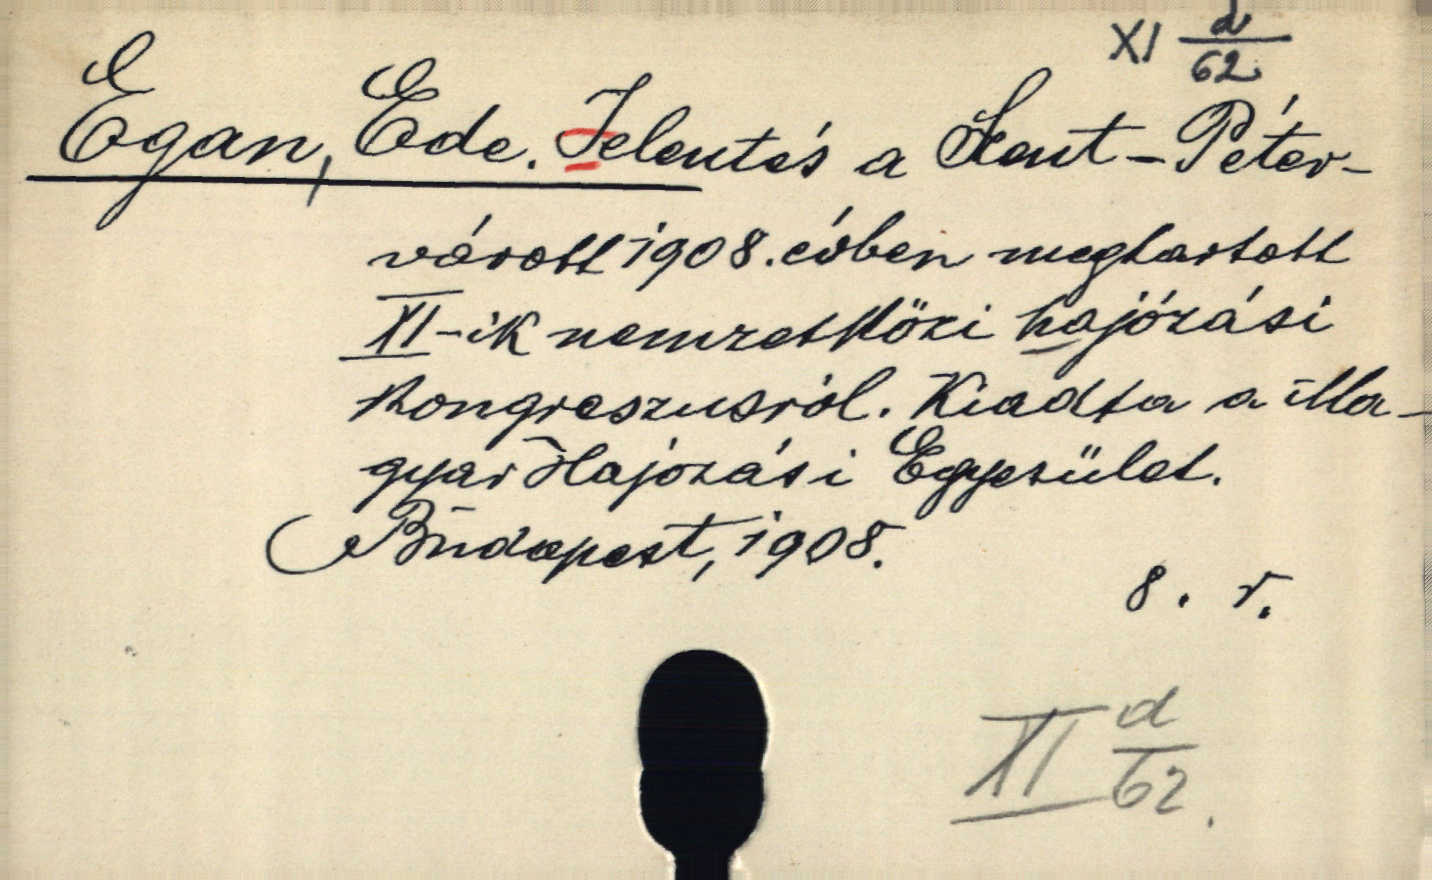 XI d/62
Egan, Ede. Jelentés a Szent-Péter-
várott 1908. évben megtartott
XI-ik nemzetközi hajózási
kongreszusról. Kiadta a Ma-
gyar Hajózási Egyesület.
Budapest, 1908.
8. r.
XI d/62.